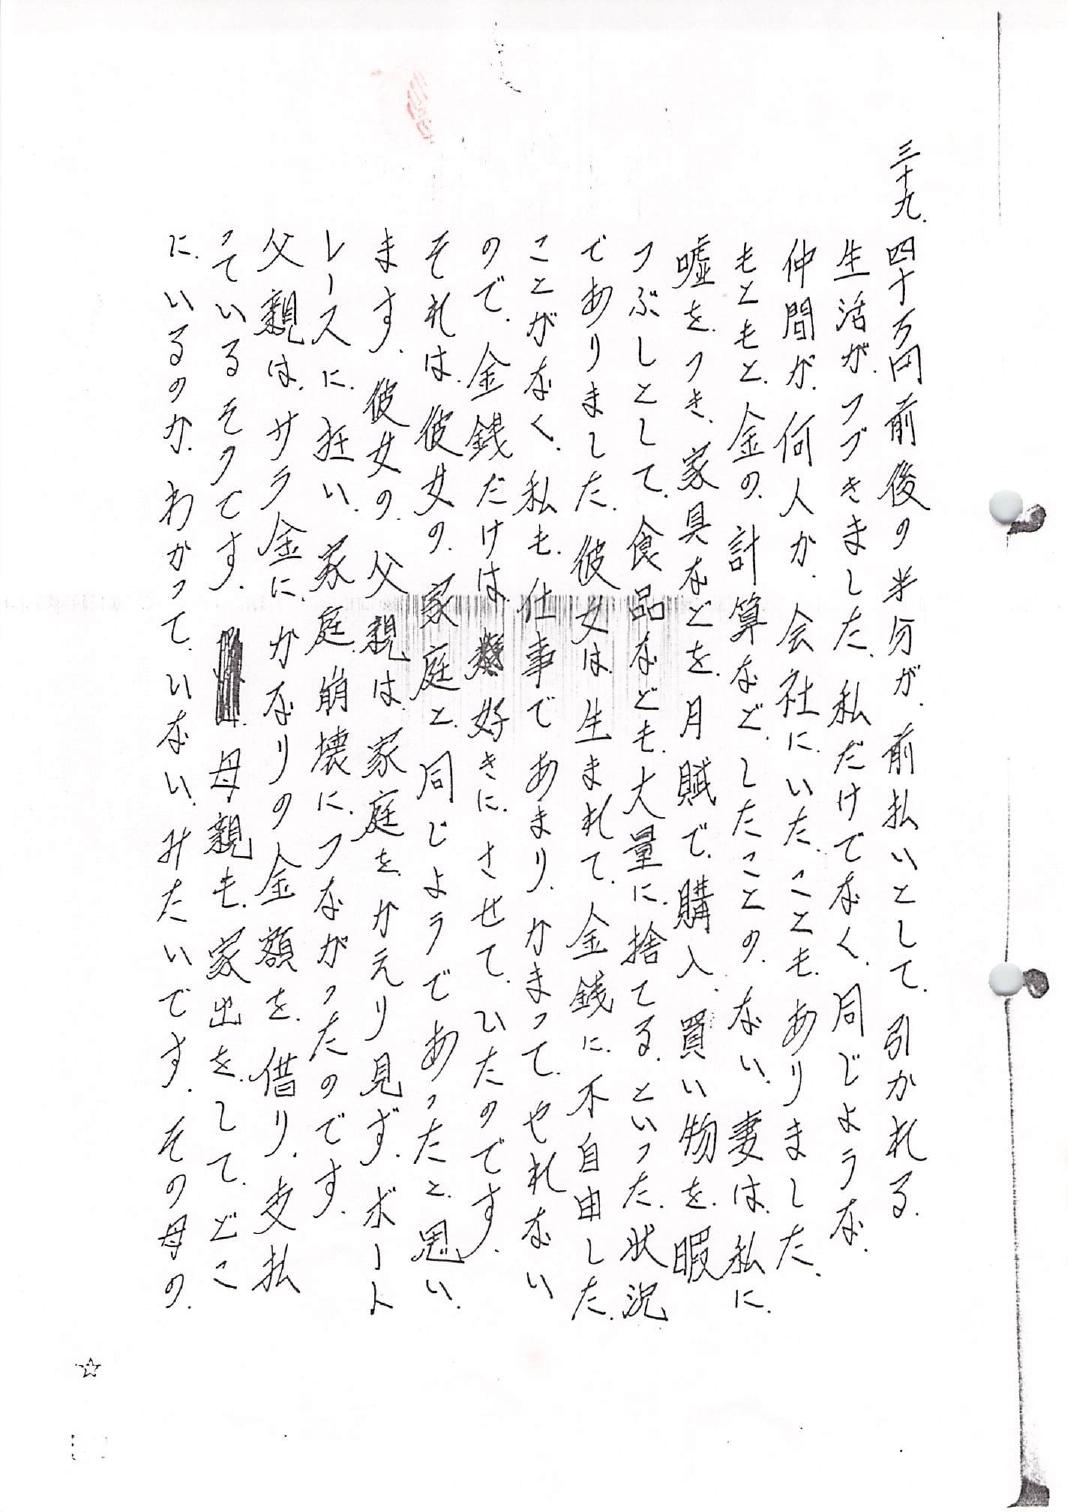 三十九.四十万円前後の半分が.前払いとして.引かれる.
生活が.つづきました.私だけでなく.同じような.
仲間が.何人か.会社に.いたことも.ありました.
もともと.金の.計算など.したことの.ない.妻は.私に.
嘘を.つき.家具などを.月賦で.購入.買い物を.暇
つぶしとして.食品なども.大量に.捨てる.といった.状況
でありました.彼女は.生まれて.金銭に.不自由した.
ことがなく.私も.仕事で.あまり.かまって.やれない
ので.金銭だけは.好きに.させて.いたのです.
それは.彼女の.家庭と.同じようであったと.思い.
ます.彼女の.父親は.家庭を.かえり見ず.ボート
レースに.狂い.家庭.崩壊に.つながったのです.
父親は.サラ金に.かなりの.金額を.借り.支払
っているそうです.母親も.家出を.して.どこ
に.いるのか.わかって.いない.みたいです.その母の.
☆